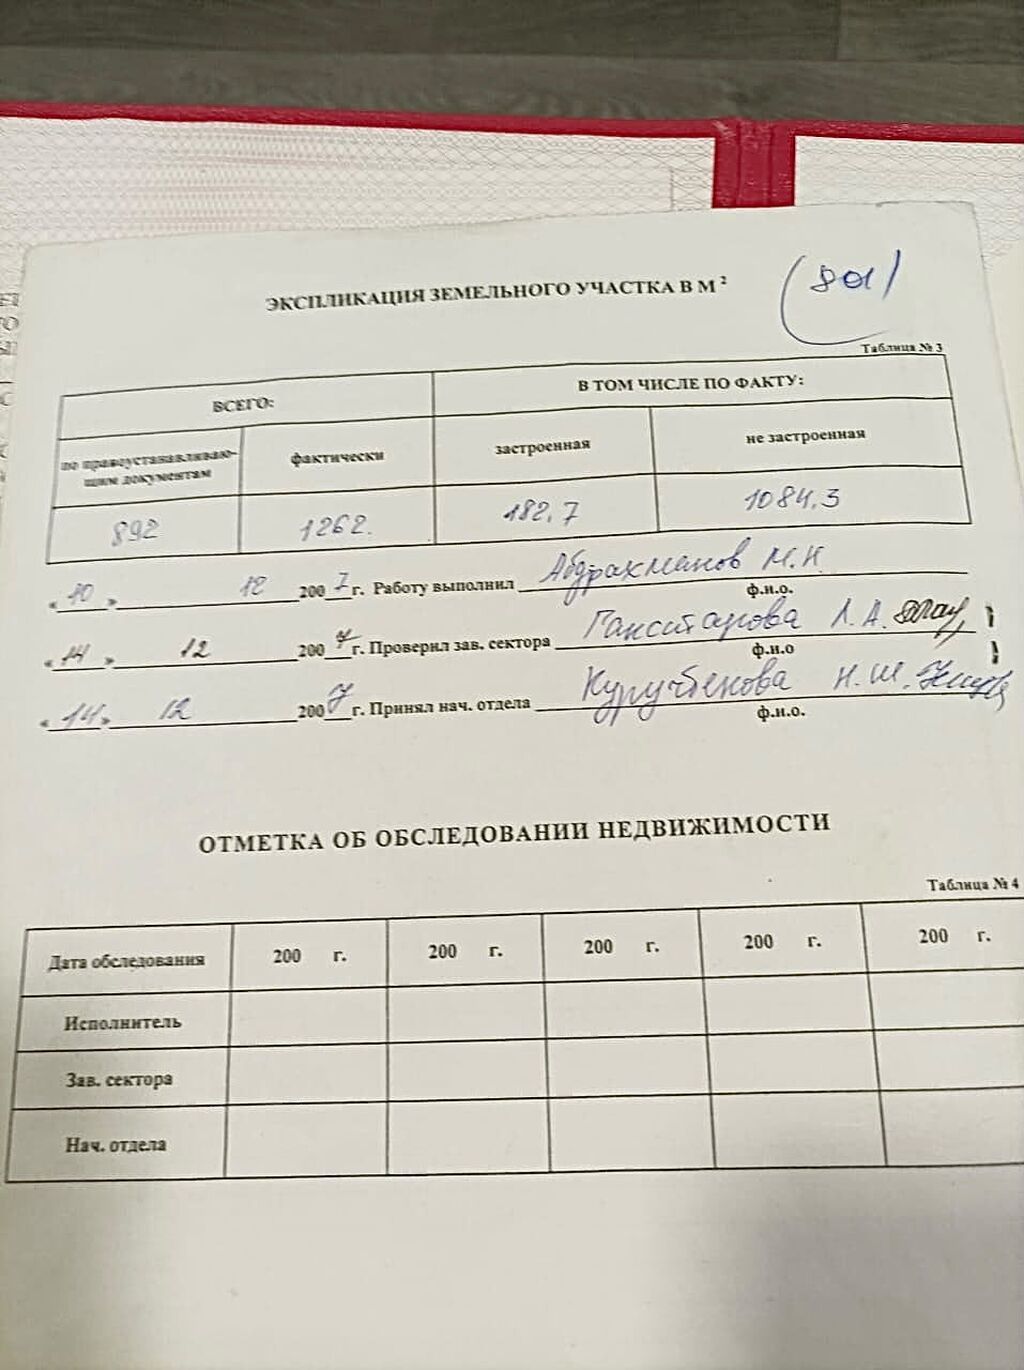 (801)
ЭКСПЛИКАЦИЯ ЗЕМЕЛЬНОГО УЧАСТКА В М²
Таблица № 3
ВСЕГО: В ТОМ ЧИСЛЕ ПО ФАКТУ:
по правоустанавливаю-щим документам фактически застроенная не застроенная
892 1262. 182,7 1084,3
« 10 » 12 2007 г. Работу выполнил Абдрахманов М.Н.
ф.и.о.
« 14 » 12 2007 г. Проверил зав. сектора Л.А.
ф.и.о
« 14 » 12 2007 г. Принял нач. отдела Куручбекова Н.Ш.
ф.и.о.
ОТМЕТКА ОБ ОБСЛЕДОВАНИИ НЕДВИЖИМОСТИ
Таблица № 4
Дата обследования 200 г. 200 г. 200 г. 200 г. 200 г.
Исполнитель
Зав. сектора
Нач. отдела